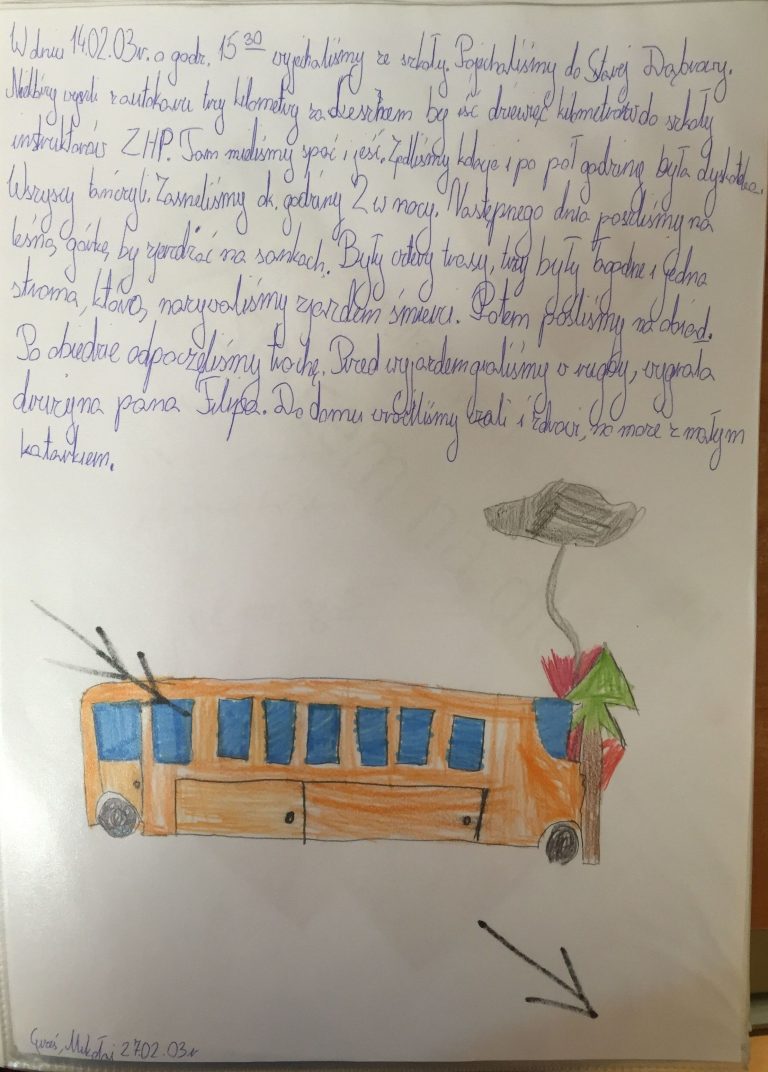 W dniu 14.02.03r. o godz. 15 30 wyjechaliśmy ze szkoły. Pojechaliśmy do Starej Dąbrowy.
wyszli z autokaru trzy kilometry za by iść dziewięć kilometrów do szkoły
instruktorów ZHP. Tam mieliśmy spać i jeść. Zjedliśmy kolację i po pół godzinie była dyskoteka.
Wszyscy tańczyli. Zasneliśmy ok. godziny 2 w nocy. Następnego dnia poszliśmy na
leśną górkę, by zjeżdżać na sankach. Były cztery trasy, trzy były łagodne i jedna
stroma, którą nazywaliśmy zjazdem śmierci. Potem pośliśmy na obiad.
Po obiedzie odpoczęliśmy trochę. Przed wyjazdem graliśmy w rugby, wygrała
drużyna pana Filipa. Do domu wróciliśmy cali i zdrowi, no może z małym
katarkiem.
27.02.03r